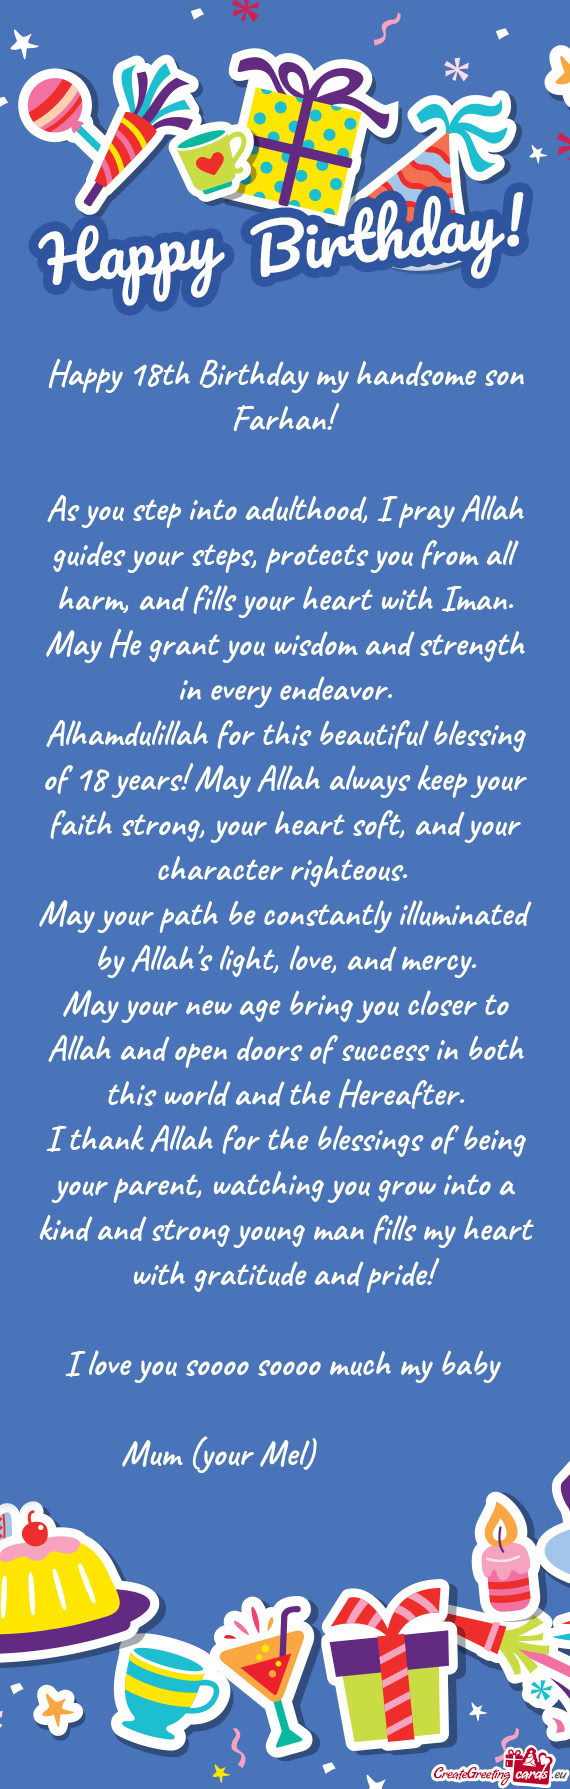 Happy Birthday!
Happy 18th Birthday my handsome son
Farhan!
As you step into adulthood, I pray Allah
guides your steps, protects you from all
harm, and fills your heart with Iman.
May He grant you wisdom and strength
in every endeavor.
Alhamdulillah for this beautiful blessing
of 18 years! May Allah always keep your
faith strong, your heart soft, and your
character righteous.
May your path be constantly illuminated
by Allah's light, love, and mercy.
May your new age bring you closer to
Allah and open doors of success in both
this world and the Hereafter.
I thank Allah for the blessings of being
your parent, watching you grow into a
kind and strong young man fills my heart
with gratitude and pride!
I love you soooo soooo much my baby
Mum (your Mel)
CreateGreetingcards.eu